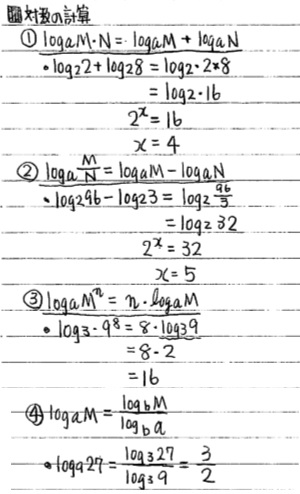 対数の計算
① logaM・N = logaM + logaN
・log₂2 + log₂8 = log₂・2*8
= log₂・16
2ˣ = 16
x = 4
② loga M/N = logaM − logaN
・log₂96 − log₂3 = log₂ 96/3
= log₂ 32
2ˣ = 32
x = 5
③ logaMⁿ = n・logaM
・log₃・9⁸ = 8・log₃9
= 8・2
= 16
④ logaM = logbM / logba
・log₉27 = log₃27 / log₃9 = 3/2